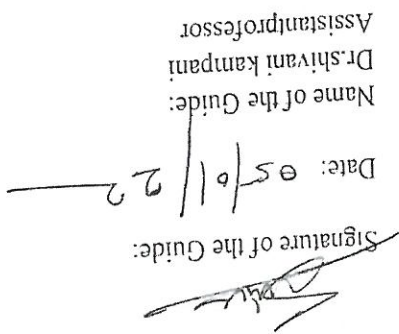 Signature of the Guide:
Date: 05/01/22
Name of the Guide:
Dr.shivani kampani
Assistantprofessor